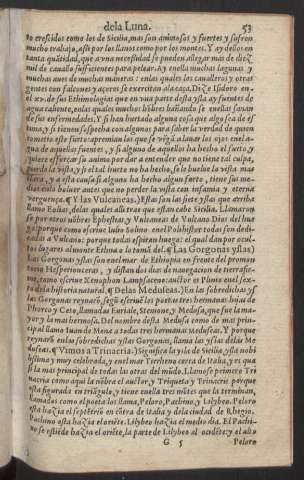 dela Luna. 53
to crescidos como los de Sicilia, mas son animosos y fuertes y sufren
mucho trabajo, assi por los llanos como por los montes. Y ay dellos en
tanta quãtidad, que a vna necessidad se pueden allegar mas de diez
mil de cauallo sufficientes para pelear. Ay en ella muchas lagunas y
muchas aues de muchas maneras: enlas quales los caualleros y otras
gentes con falcones y açores se exercitan ala caça. Dize Isidoro en
el xv. de sus Ethimologias que en vna parte desta ysla ay fuentes de
agua caliente, enlas quales muchos bañandose en ellas sanan
de sus enfermedades. Y si han hurtado alguna cosa que algo sea de
y si tienen sospecha con algunos para saber la verdad de quien
cometio este furto: apremian los que se vengan a lauar los ojos enel a-
gua de aquellas fuentes, y si alguno de aquellos ha hecho el furto, y
quiere esforçar su animo por dar a entender que no tiene tal culpa,
pierde la vista, y si el tal hurto no ha hecho, se le buelue la vista mas
clara, y a esta causa si alguno ha hecho algun furto, tiene sus me-
dios enlo boluer antes que no perder la vista con infamia y eterna
verguença. ¶ Y las Vulcaneas.) Estas son las siete yslas que arriba
llamo Eolias, delas quales allitras que estan cabe Sicilia. Llamaron
se por otros nõbres Ephestias, y Vulcaneas de Vulcano Dios del fue
go: porque como escriue Iulio Solino enel Polyhistor todas son dedi-
cadas a Vulcano: porque todas espiran huego: el qual dan por ocul-
tos lugares al monte Ethna o lo tomã del. ¶ Las Gorgonas yslas.)
Las Gorgonas yslas son enel mar de Ethiopia en frente del promon
torio Hesperionceras, y distan dos dias de nauegacion de tierra fir-
me, como escriue Xenophon Lampsaceno: auctor es Plinio enel sex-
to dela historia natural. ¶ Delas Meduseas.) En las sobredichas ys
las Gorgonas reynarõ, segũ escriuẽ los poetas tres hermanas hijas de
Phorco y Ceto, llamadas Euriale, Stenone, y Medusa, que fue la ma-
yor y la mas hermosa. Del nombre desta Medusa como de mas prin-
cipal llamo Iuan de Mena a todas tres hermanas Meduseas. Y porque
reynarõ enlas sobredichas yslas Gorgonas, llama las yslas delas Me
duseas. ¶ Vimos a Trinacria.) Significa la ysla de Sicilia ysla nobi
lissima y muy celebrada, y enel mar Tyrrheno cerca de Italia, y es qua
si la mas principal de todas las otras del mũdo. Llamose primero Tri
nacria como aqui la nõbra el auctor, y Triquetra y Trinacris porque
esta figurada en triãgulo, y tiene enella tres mõtes que la terminan,
llamados como el poeta los llama, Peloro, Pachino, y Lilybeo. Peloro
esta hazia el septẽtriõ en cõtra de Italia y dela ciudad de Rhegio.
Pachino esta hazia el oriẽte. Lilybeo hazia el medio dia. El Pachi-
no se estiẽde hazia el oriẽte, la parte de Lilybeo al occidẽte, y el alto
G 5 Peloro